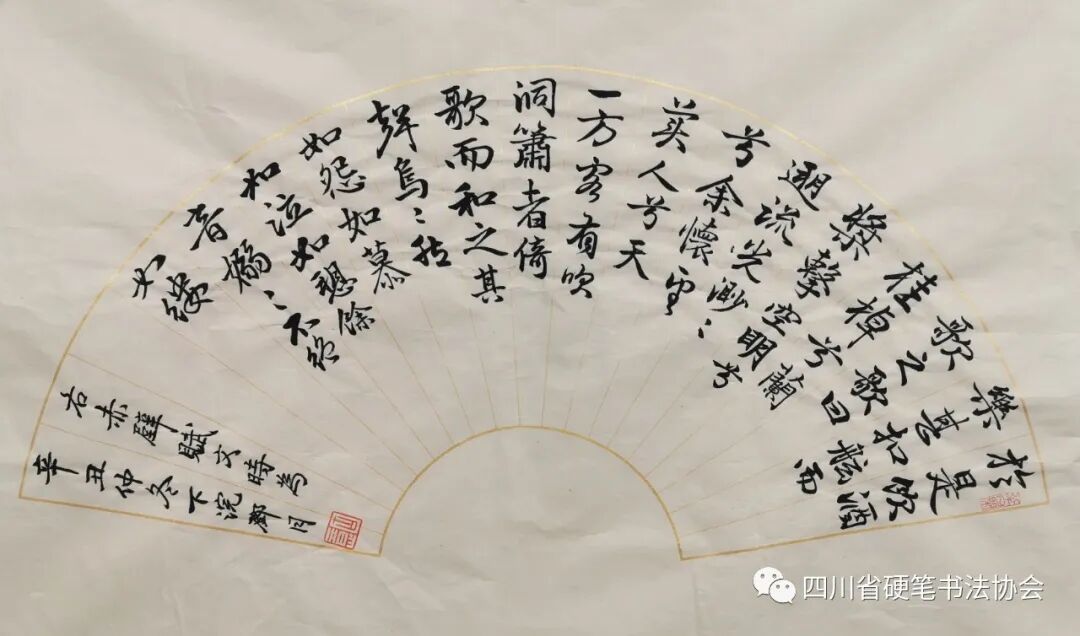 於是飲酒
樂甚扣舷而
歌之歌曰
桂棹兮蘭
槳擊空明
遡流光渺〻兮
兮余懷望
美人兮天
一方客有吹
洞簫者倚
歌而和之其
聲烏〻然
如怨如慕
如泣如愬餘
音嫋〻不絕
如縷
右赤壁賦文時為
辛丑仲冬下浣鄧月
四川省硬笔书法协会